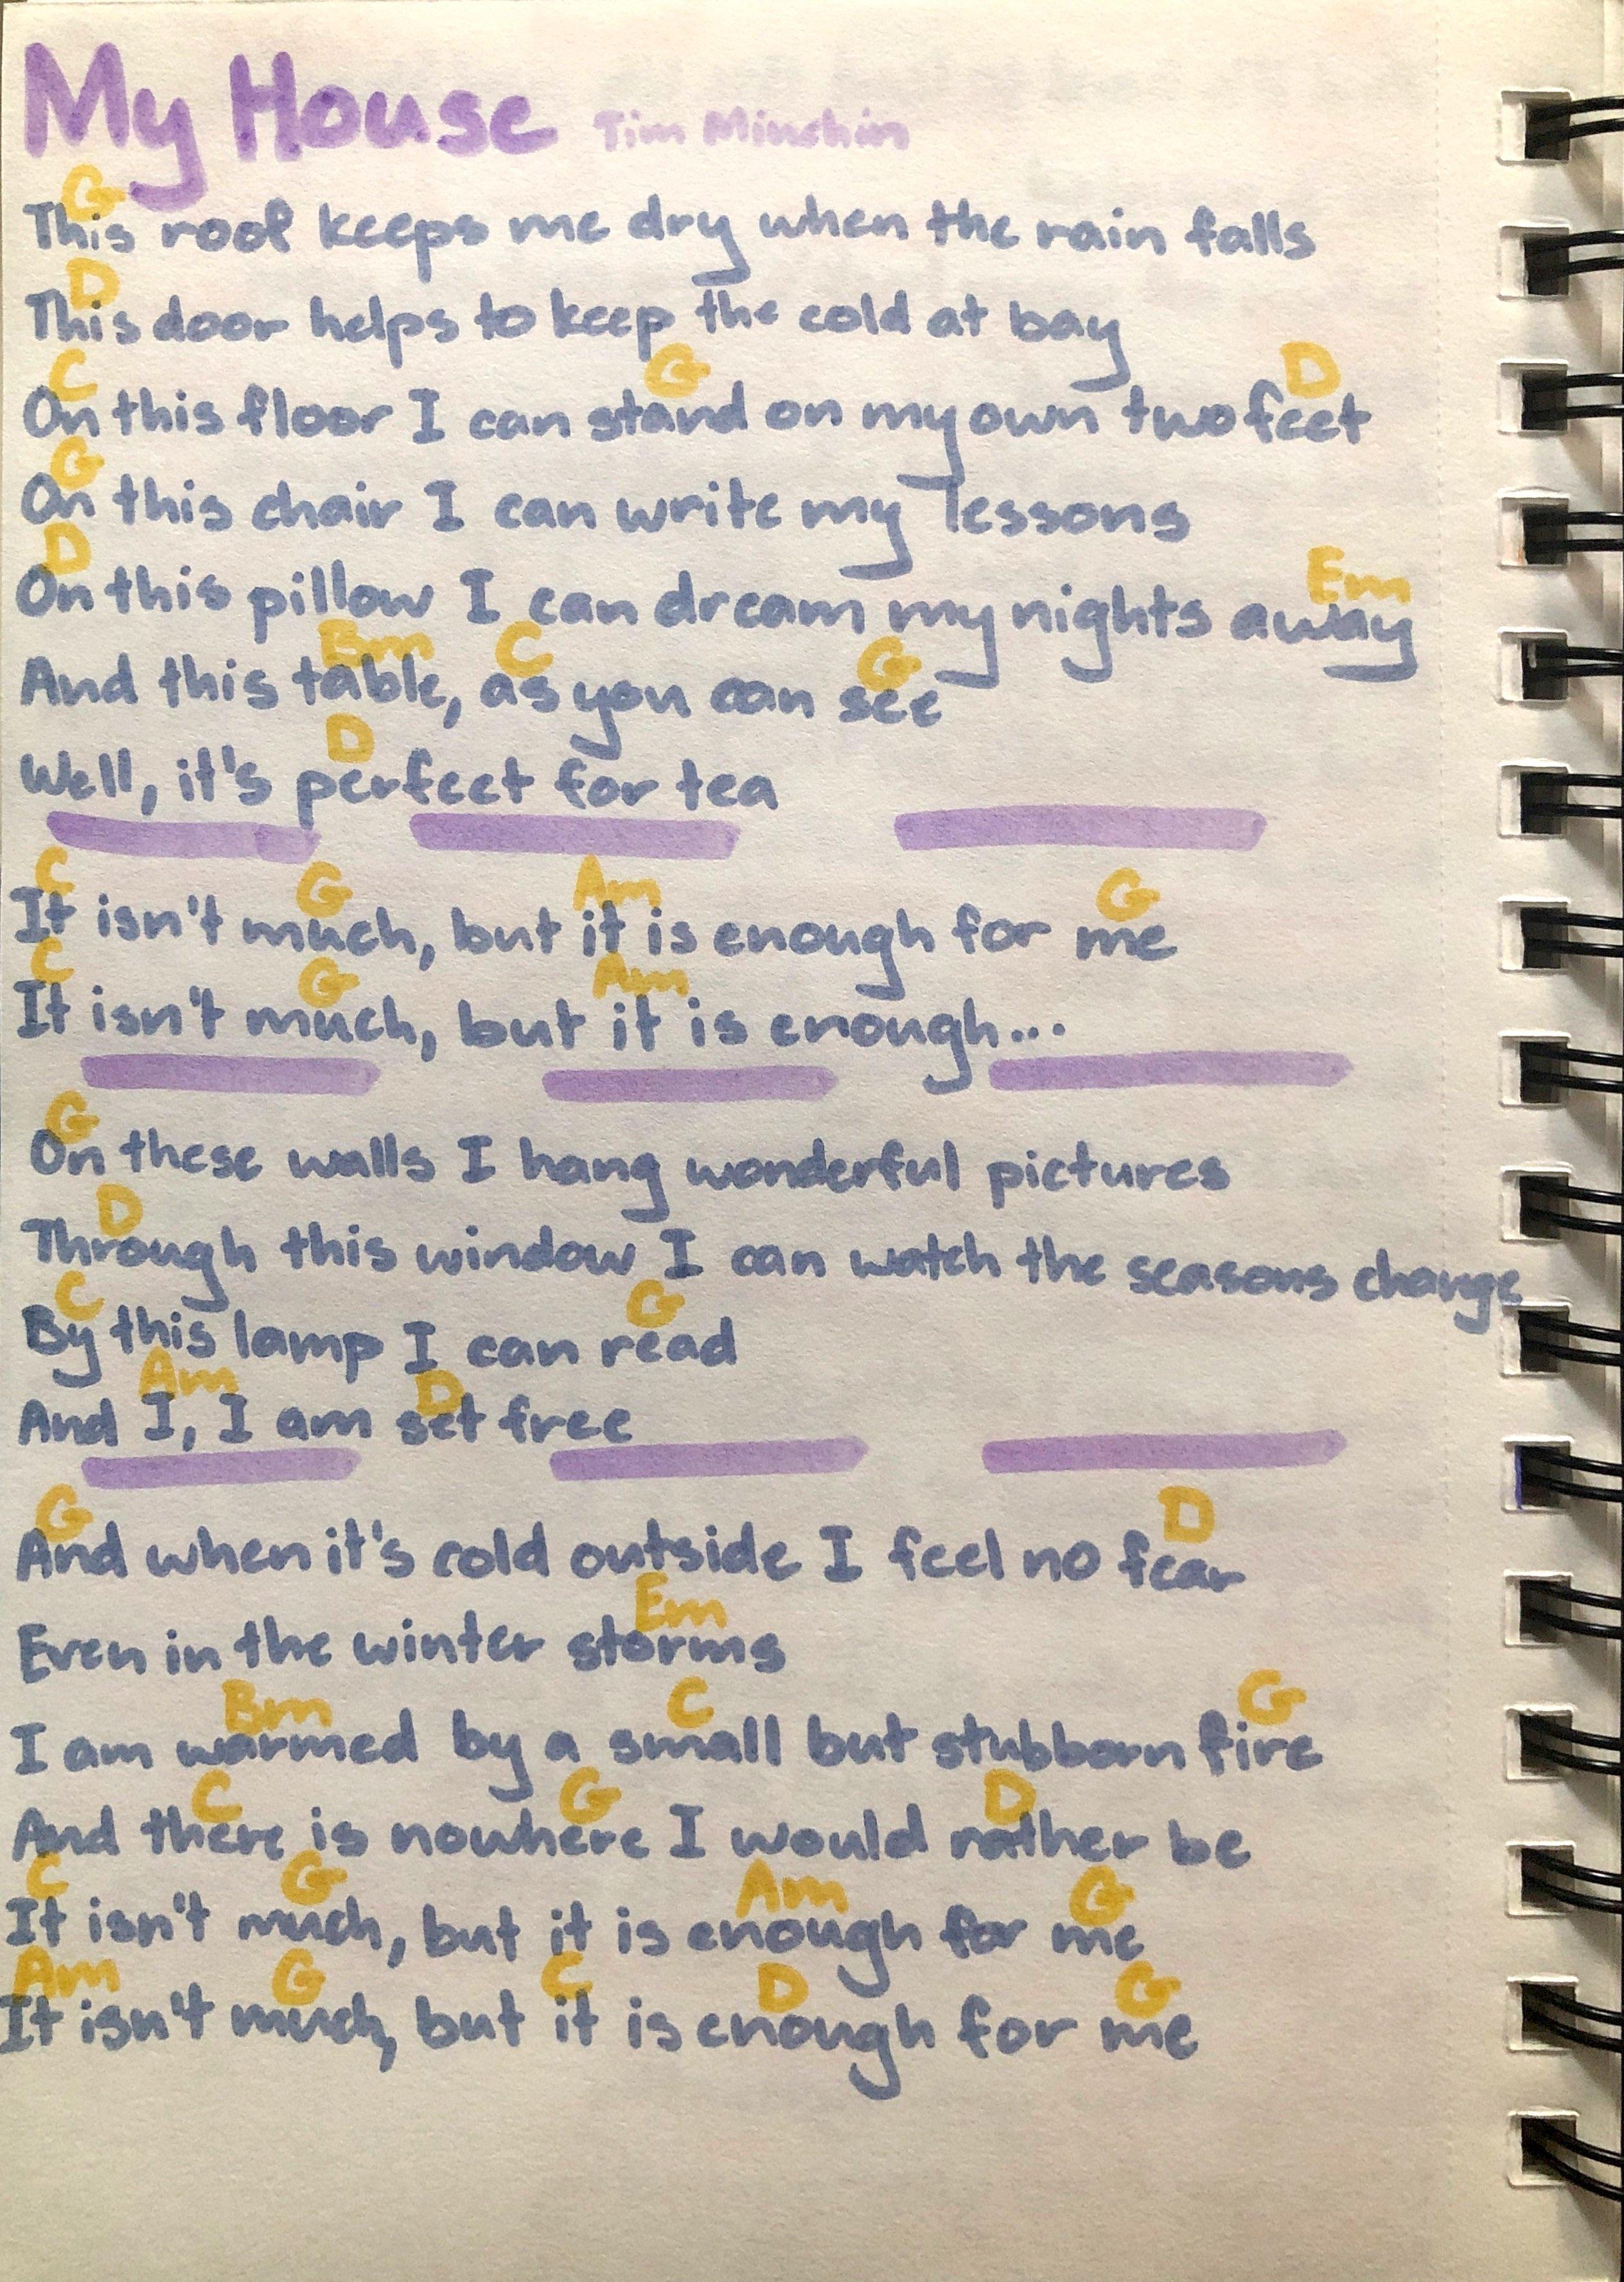 My House Tim Minchin
G
This roof keeps me dry when the rain falls
D
This door helps to keep the cold at bay
C G D
On this floor I can stand on my own two feet
G
On this chair I can write my lessons
D Em
On this pillow I can dream my nights away
Em C G
And this table, as you can see
D
Well, it's perfect for tea
C G Am G
It isn't much, but it is enough for me
C G Am
It isn't much, but it is enough...
G
On these walls I hang wonderful pictures
D
Through this window I can watch the seasons change
C G
By this lamp I can read
Am D
And I, I am set free
G D
And when it's cold outside I feel no fear
Em
Even in the winter storms
Bm C G
I am warmed by a small but stubborn fire
C G D
And there is nowhere I would rather be
C G Am G
It isn't much, but it is enough for me
Am G C D G
It isn't much, but it is enough for me